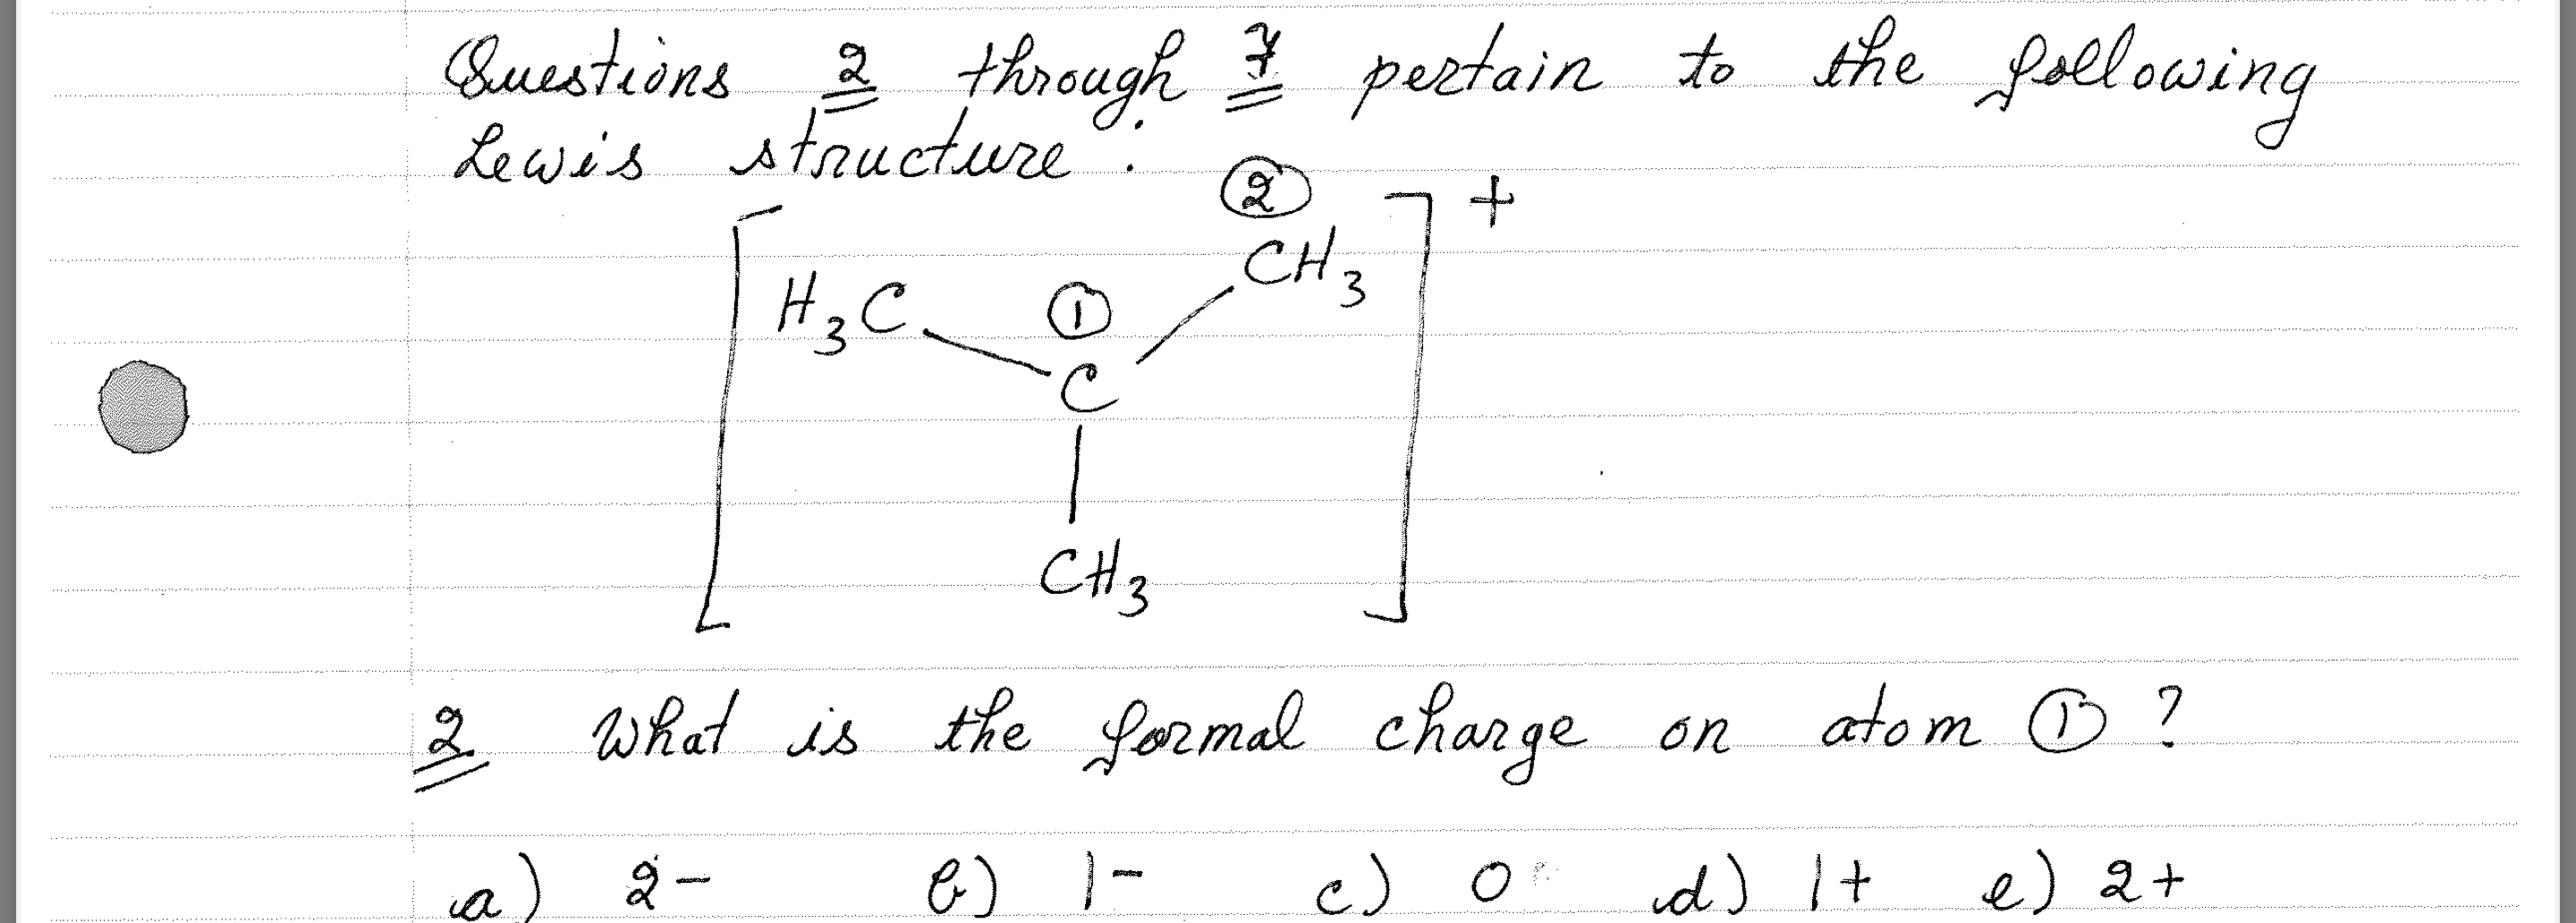 Questions 2 through 7 pertain to the following
Lewis structure :
[ ② ] +
CH3
H3C ①
C
CH3
2 What is the formal charge on atom ① ?
a) 2- b) 1- c) 0 d) 1+ e) 2+